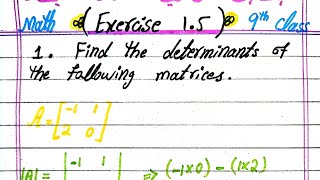 Math (Exercise 1.5) 9th class
1. Find the determinants of
the following matrices.
A = [-1 1
2 0]
|A| = | -1 1 | => (-1x0) - (1x2)